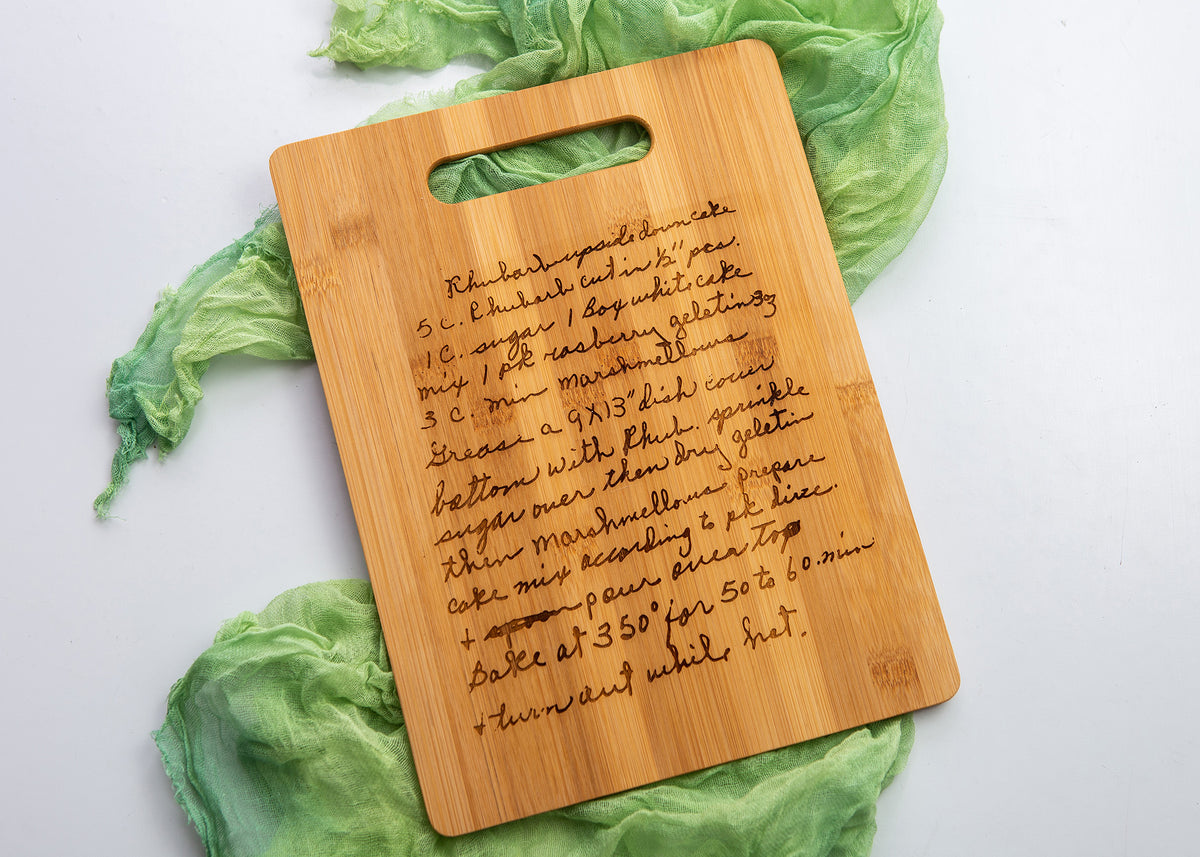 Rhubarb upside down cake
5 c. Rhubarb cut in ½" pcs.
1 c. sugar 1 Box white cake
mix 1 pk rasberry geletin 3oz
3 c. min marshmellows
Grease a 9X13" dish cover
bottom with Rhub. sprinkle
sugar over then dry geletin
then marshmellows prepare
cake mix according to pk dirze.
+ spoon pour over top
Bake at 350° for 50 to 60 min
+ turn out while hot.